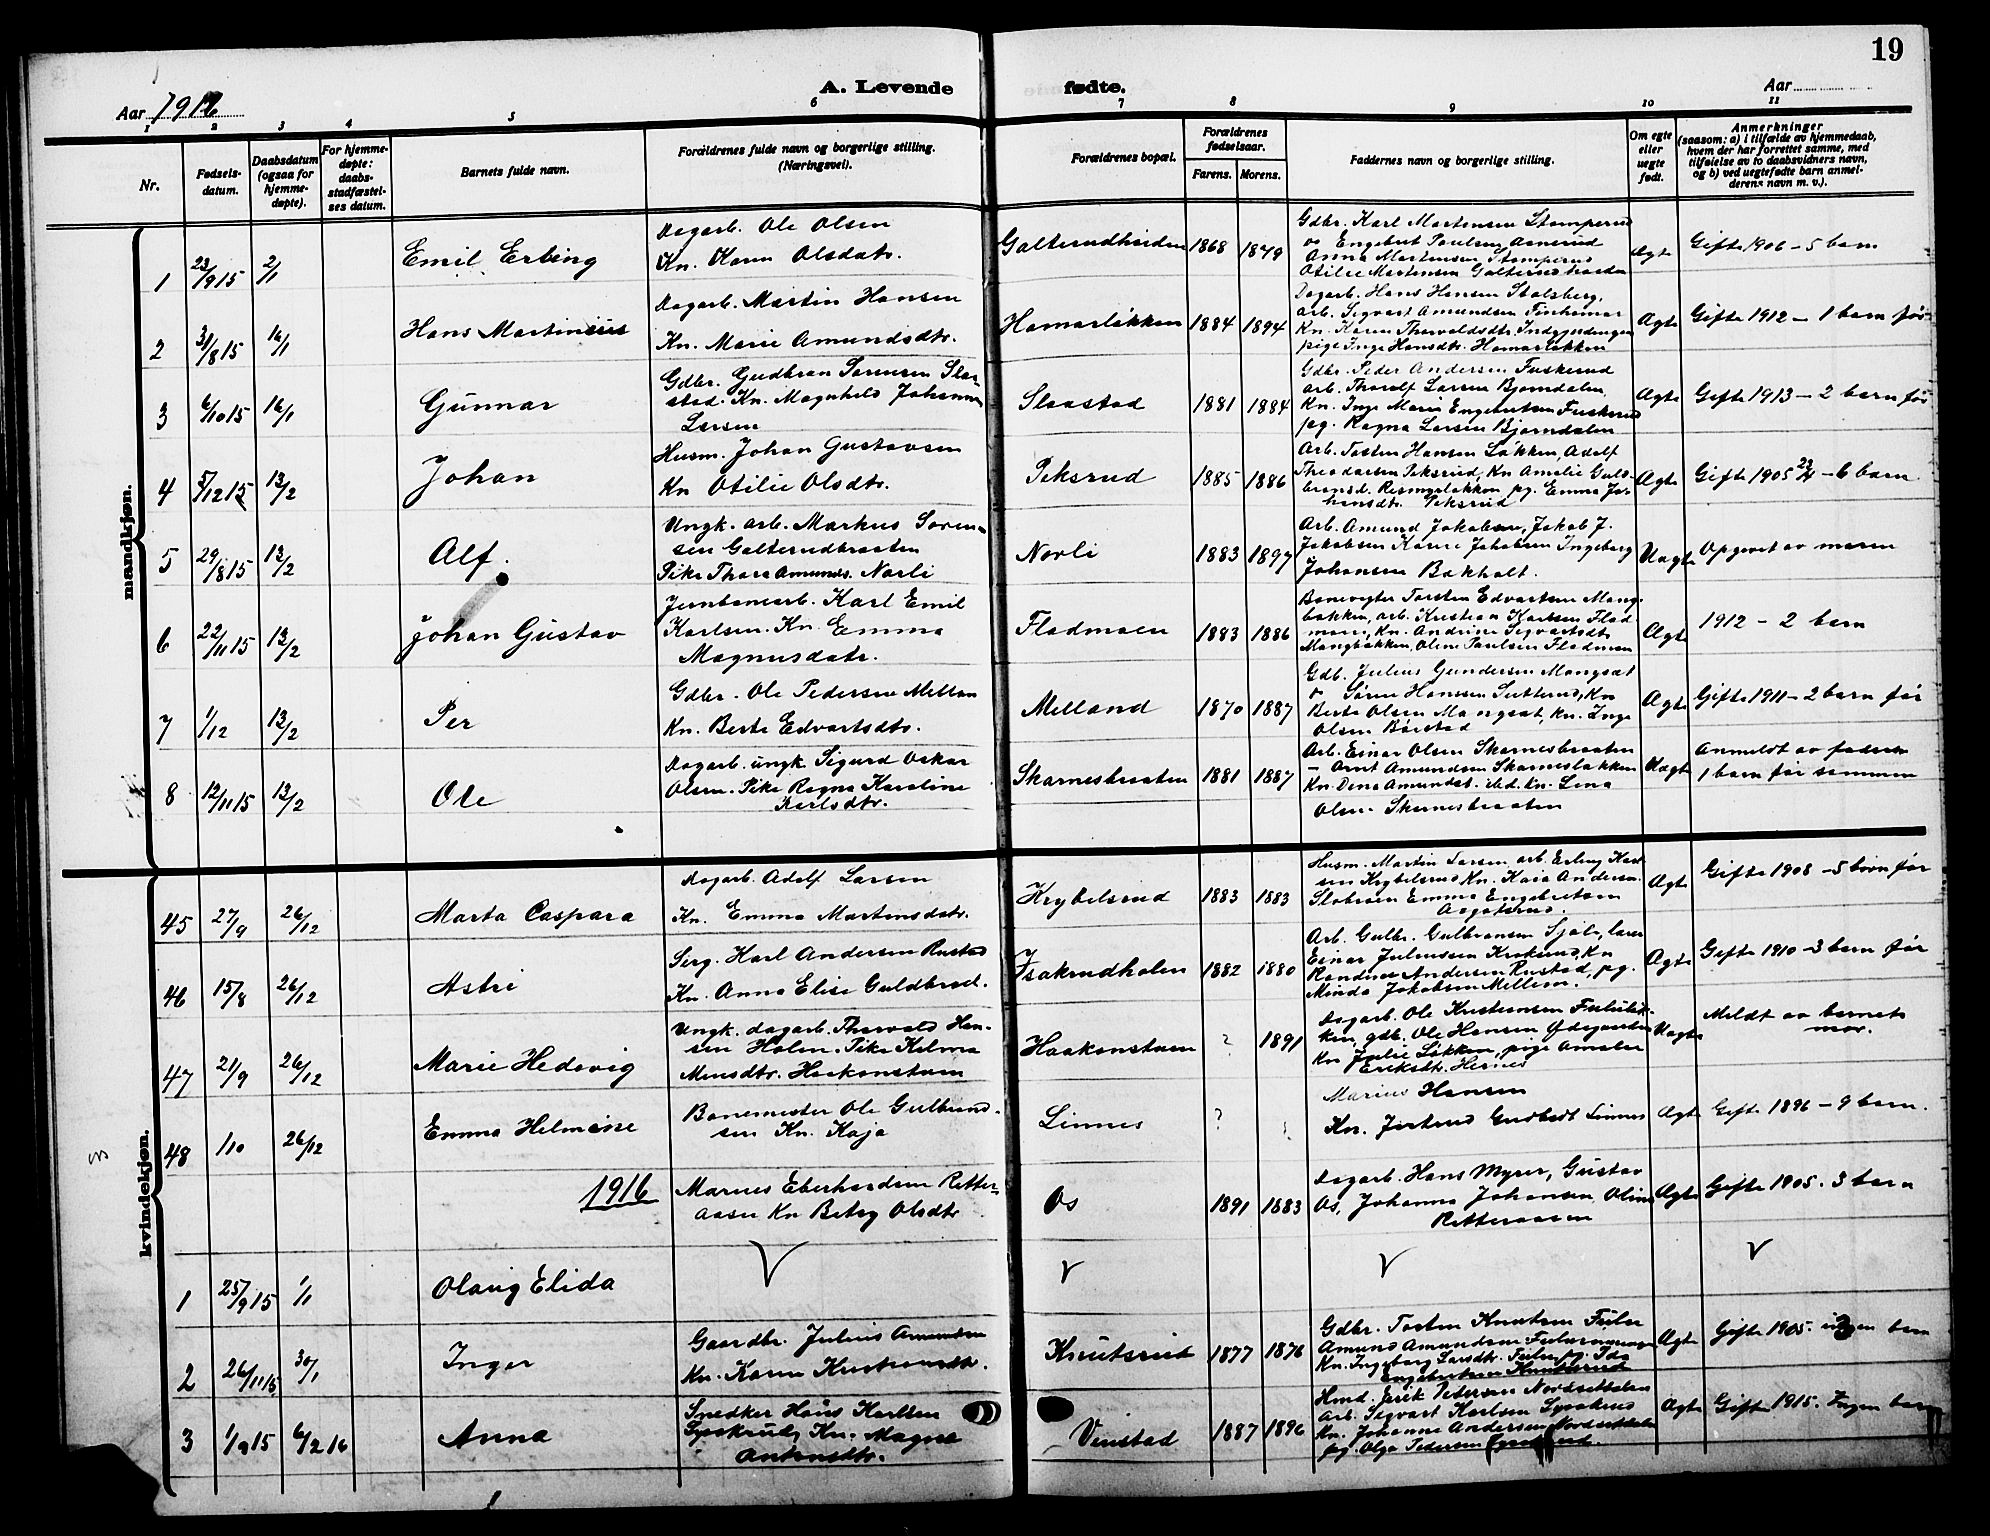 19
A. Levende fødte.
Aar 1916
Aar
1 2 3 4 5 6 7 8 9 10 11
Nr.
Fødsels-
datum.
Daabsdatum
(ogsaa for
hjemme-
døpte).
For hjemme-
døpte:
daabs-
stadfæstel-
ses datum.
Barnets fulde navn.
Forældrenes fulde navn og borgerlige stilling.
(Næringsvei).
Forældrenes bopæl.
Forældrenes
fødselsaar.
Farens. Morens.
Faddernes navn og borgerlige stilling.
Om egte
eller
uegte
født.
Anmerkninger
(saasom: a) i tilfælde av hjemmedaab,
hvem der har forrettet samme, med
tilføielse av to daabsvidners navn,
og b) ved uegtefødte barn anmel-
derens navn m. v.).
mandkjøn.
1 23/9 15 2/1 Emil Erling
Dagarb. Ole Olsen
Kn. Karen Olsdatr.
Galterudheiden 1868 1879
Gdbr. Karl Martensen Stomperud
og Engebret Paulsen Aamerud
Anna Martensen Stomperud
Otilie Martensen Galterudheiden
Ægte Gifte 1906 - 5 barn
2 31/8 15 16/1 Hans Martinius
Dagarb. Martin Hansen
Kn. Marie Amundsdtr.
Hamarløkken 1884 1894
Dagarb. Hans Hansen Stolsberg,
arb. Sigvart Amundsen
Kn. Karen Thorvaldsdtr.
pige Inga Hansdtr. Hamarløkken
Ægte Gifte 1912 - 1 barn før
3 6/10 15 16/1 Gunnar
Gdbr. Gudbran Sørensen Slaa-
stad. Kn. Magnhild Johanne
Larsen
Slaastad 1881 1884
Gdbr. Peder Andersen Fuskerud
arb. Thorolf Larsen Bjørndalen,
Kn. Inga Marie Engebretsen Fuskerud
pg. Ragna Larsen Bjørndalen
Ægte Gifte 1913 - 2 barn før
4 5/12 15 13/2 Johan
Husm. Johan Gustavsen
Kn Otilie Olsdtr.
Peksrud 1885 1886
Arb. Tosten Hansen Løkken, Adolf
Theodorsen Peksrud, Kn Amalie Guld-
bransd. pg. Emma Jo-
hansdtr. Peksrud
Ægte Gifte 1905 - 6 barn
5 29/8 15 13/2 Alf.
Ungk. arb. Markus Søren-
sen Galterudbraaten
Pike Thora Amunds. Norli
Norli 1883 1897
Arb. Amund Jakobsen, Jakob J.
Jakobsen Karen Jakobsen Ingeborg
Johansen Bakholt.
Uægte Opgivet av moren
6 22/11 15 13/2 Johan Gustav
Jernbanearb. Karl Emil
Karlsen. Kn. Emma
Magnusdatr.
Fladmoen 1883 1886
Banevogter Torsten Edvartsen Mang-
bakken, arb. Kristian Karlsen Flad-
moen, Kn. Andrine Sigvartsdtr
Mangbakken, Oline Paulsen Fladmoen
Ægte 1912 - 2 barn
7 1/12 13/2 Per
Gdbr. Ole Pedersen Millan
Kn. Berte Edvartsdtr.
Melland 1870 1887
Gdb. Julius Gundersen Mangset
o Søren Hansen Sutterud, Kn
Berte Olsen Mangset, Kn. Inga
Olsen Børstad
Ægte Gifte 1911 - 2 barn før
8 12/11 15 13/2 Ole
Dagarb. ungk. Sigurd Oskar
Olsen. Pike Ragna Karoline
Karlsdtr.
Skarnesbraaten 1881 1887
Arb. Einar Olsen Skarnesbraaten
- Arnt Amundsen Skarnesløkken
Kn. Dina Amundsd. ibd. Kn. Lina
Olsen Skarnesbraaten
Uægte Anmeldt av faderen
1 barn før sammen
kvindekjøn.
45 27/9 26/12 Marta Caspara
Dagarb. Adolf Larsen
Kn. Emma Martinsdatr.
Krybelsrud 1883 1883
Husm. Martin Larsen, arb. Erling Karl-
sen Krybelsrud Kn. Kaia Andersen
Slobraaen Emma Engebretsen
Asgotsrud.
Ægte Gifte 1908 - 5 børn før
46 15/8 26/12 Astri
Serg. Karl Andersen Rustad
Kn. Anna Elise Guldbrsd.
Isakrudholen 1882 1880
Arb. Gulbr. Gulbransen Sjøli, lærer
Einar Juliussen Krokerud, Kn
Randine Andersen Rustad, pg.
Minda Jakobsen Millem.
Ægte Gifte 1910 - 3 barn før
47 21/9 26/12 Marie Hedevig
Ungk. dagarb. Thorvald Han-
sen Holen. Pike Kilma
Monsdtr. Haakonstuen
Haakonstuen ? 1891
Dagarb. Ole Kristiansen Fulsløk-
ken, gdb. Ole Hansen Ødegaarden
Kn Julie Løkken, pige Amalie
Eriksdtr. Hernes
Uægte Meldt av barnets
mor.
48 1/10 26/12 Emma Helmine
Banemester Ole Gulbrand-
sen Kn. Kaja
Linnes ? ?
Marius Hansen
Kn. Jertrud Gudbrdt Linnes
Ægte Gifte 1896 - 9 barn.
1916
Marius Eberhardsen Retter-
aasen Kn Betsy Olsdtr
Os 1891 1883
Dagarb. Hans Myrer, Gustav
Os, Johanna Johansen, Oline
Retteraasen
Ægte Gifte 1905. 3 barn
1 25/9 15 1/1 Olaug Elida
V V V V
2 26/11 15 30/1 Inger
Gaardbr. Julius Amundsen
Kn. Karen Kristiansdtr.
Knutsrud 1877 1876
Gdbr. Tosten Knutsen Fuler
Amund Amundsen
Kn. Ingeborg Larsdtr. Fuler, pg. Ida
Engebretsen Knutsrud
Ægte Gifte 1905. ingen barn
3 1/9 15 6/2 16 Anna
Snedker Hans Karlsen
Sperkrud, Kn. Magna
Antonsdtr.
Vinstad 1887 1896
Hmd. Erik Petersen Nordsetdalen
Arb. Sigvart Karlsen
Kn. Johanne Andersen Nordsetdalen
pg. Olga Pedersen
Ægte Gifte 1915. Ingen barn